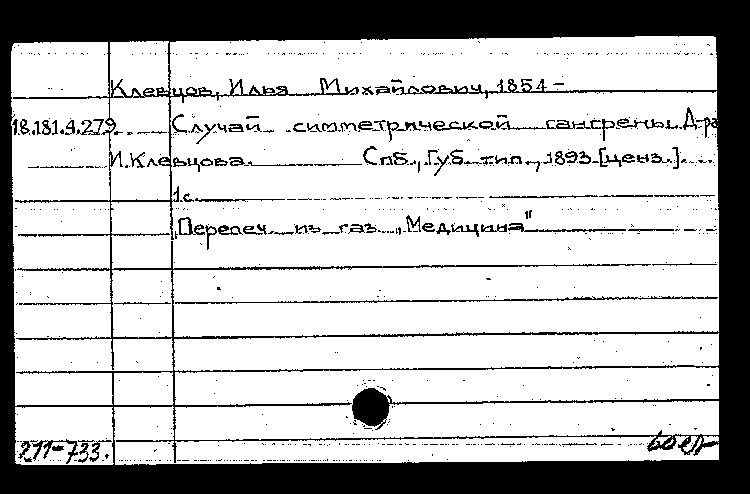 Клевцов, Илья Михайлович, 1854-
18.181.4.279. Случай симметрической гангрены. Д-ра
И. Клевцова. Спб., Губ. тип., 1893 [ценз.].
1 с.
"Перепеч. из газ. „Медицина"
271-733.